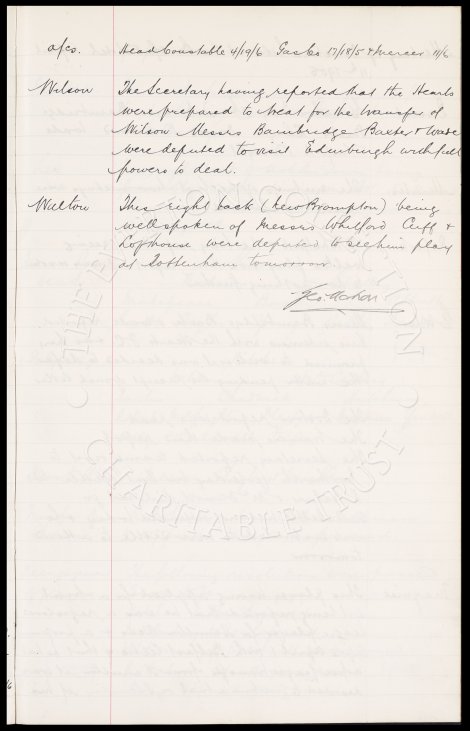 a/cs. Head Constable 4/19/6 Gas Co 17/18/5 & Mercer 11/6
Wilson The Secretary having reported that the Hearts
were prepared to treat for the transfer of
Wilson Messrs Bainbridge Baxter & Wade
were deputed to visit Edinburgh with full
powers to deal.
Walton This right back (New Brompton) being
well spoken of Messrs Whitford Cuff &
Lofthouse were deputed to see him play
at Tottenham tomorrow.
Geo. Mahon
THE
CHARITABLE TRUST